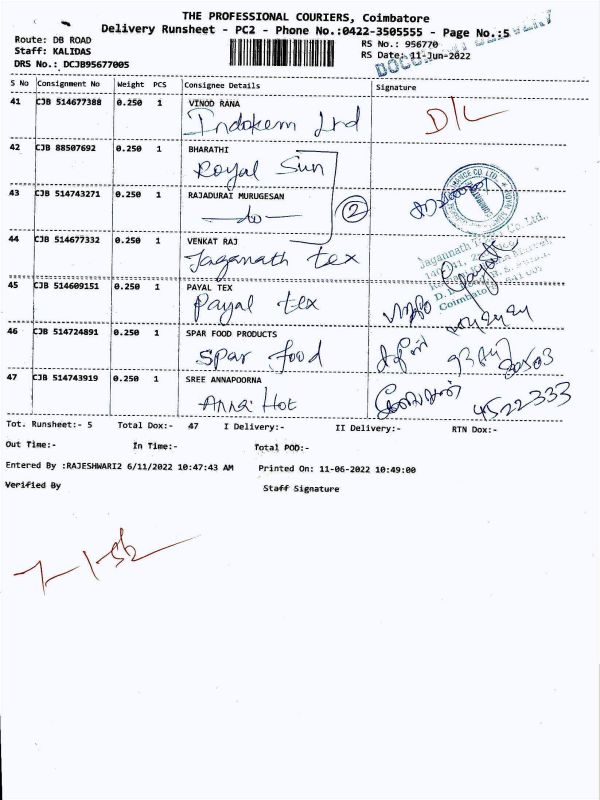 THE PROFESSIONAL COURIERS, Coimbatore
Delivery Runsheet - PC2 - Phone No.:0422-3505555 - Page No.:5
Route: DB ROAD
Staff: KALIDAS
DRS No.: DCJB95677005
RS No.: 956770
RS Date: 11-Jun-2022
DOCUMENT DELIVERY
S No Consignment No Weight PCS Consignee Details Signature
41 CJB 514677388 0.250 1 VINOD RANA
Indokem Ltd D/L
42 CJB 88507692 0.250 1 BHARATHI
Royal Sun
43 CJB 514743271 0.250 1 RAJADURAI MURUGESAN
-do- 2
44 CJB 514677332 0.250 1 VENKAT RAJ
Jaganath tex
45 CJB 514609151 0.250 1 PAYAL TEX
Payal tex
46 CJB 514724891 0.250 1 SPAR FOOD PRODUCTS
Spar food
47 CJB 514743919 0.250 1 SREE ANNAPOORNA
Anna Hot 4522333
Tot. Runsheet:- 5 Total Dox:- 47 I Delivery:- II Delivery:- RTN Dox:-
Out Time:- In Time:- Total POD:-
Entered By :RAJESHWARI2 6/11/2022 10:47:43 AM Printed On: 11-06-2022 10:49:00
Verified By Staff Signature